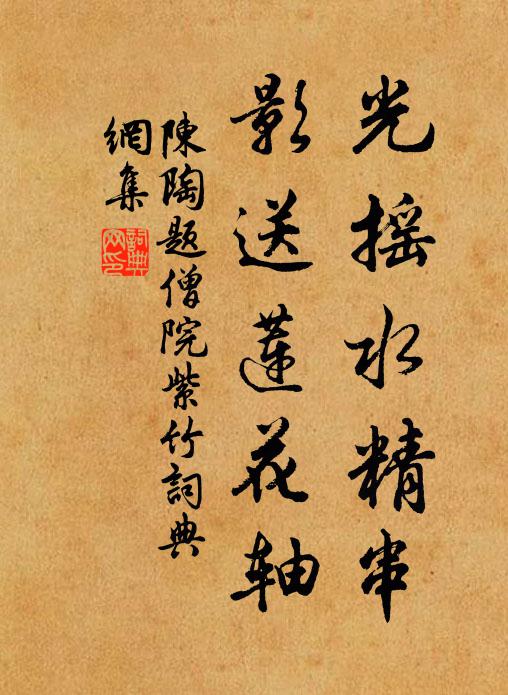 光摇水精串
影送蓮花轴
陳陶題僧院紫竹詞典
網集
詞典
网印